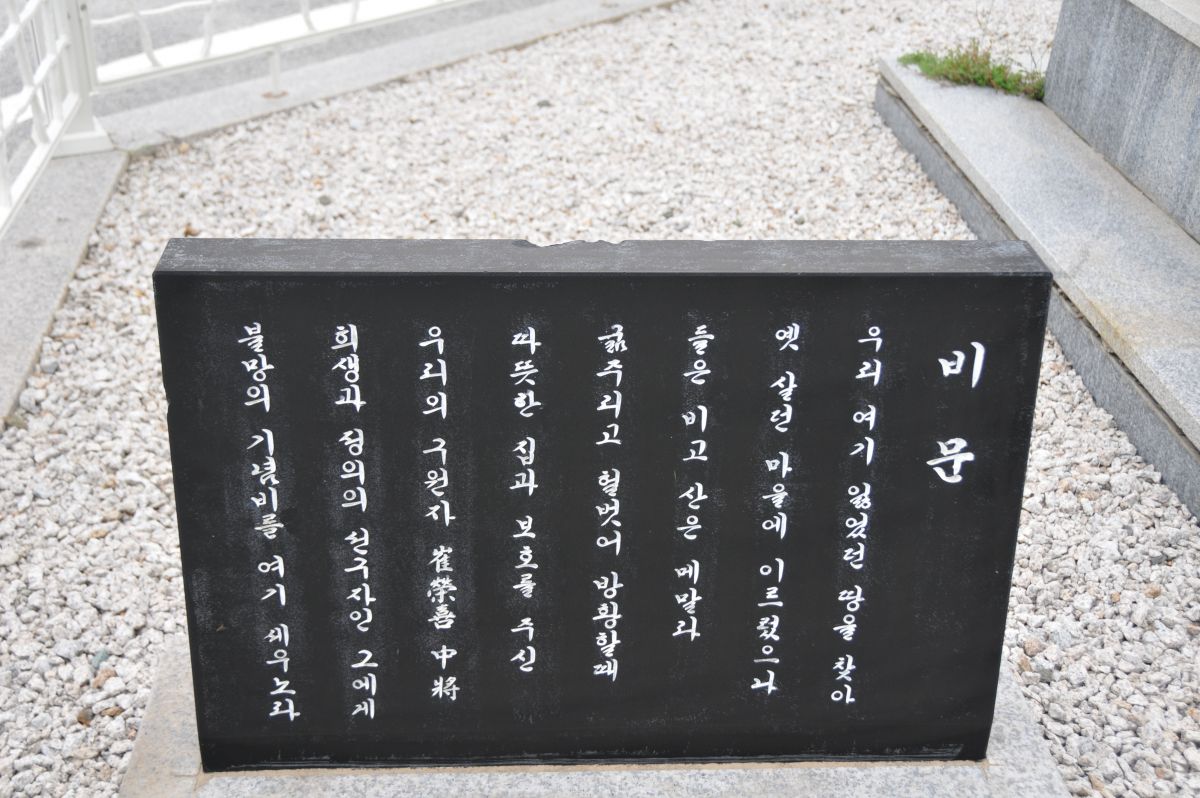 비문
우리 여기 잃었던 땅을 찾아
옛 살던 마을에 이르렀으나
들은 비고 산은 메말라
굶주리고 헐벗어 방황할때
따뜻한 집과 보호를 주신
우리의 구원자 崔榮喜 中將
희생과 정의의 선구자인 그에게
불망의 기념비를 여기 세우노라